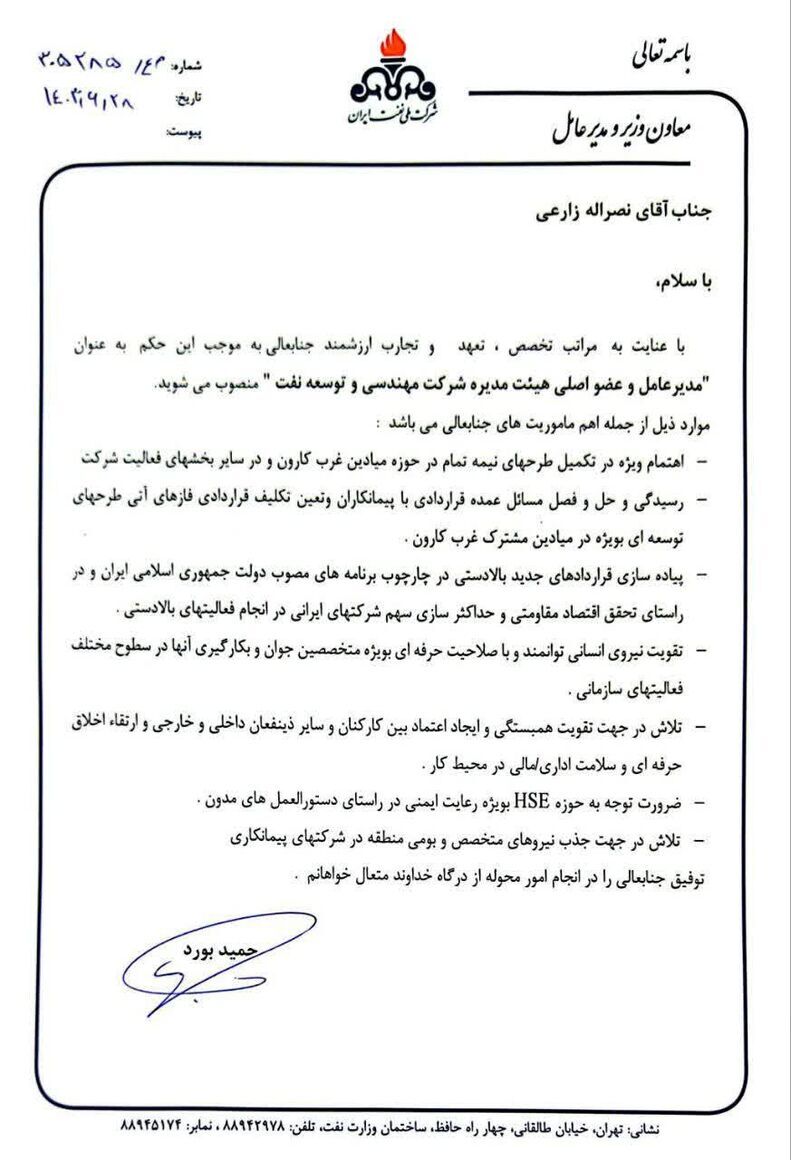 باسمه تعالی
معاون وزیر و مدیرعامل
شرکت ملی نفت ایران
شماره: ۳۰۵۲۸۵ /
تاریخ: ۱۴۰۳,۹,۲۸
پیوست:
جناب آقای نصراله زارعی
با سلام،
با عنایت به مراتب تخصص ، تعهد و تجارب ارزشمند جنابعالی به موجب این حکم به عنوان
"مدیرعامل و عضو اصلی هیئت مدیره شرکت مهندسی و توسعه نفت " منصوب می شوید.
موارد ذیل از جمله اهم ماموریت های جنابعالی می باشد :
– اهتمام ویژه در تکمیل طرحهای نیمه تمام در حوزه میادین غرب کارون و در سایر بخشهای فعالیت شرکت
– رسیدگی و حل و فصل مسائل عمده قراردادی با پیمانکاران وتعین تکلیف قراردادی فازهای آتی طرحهای
توسعه ای بویژه در میادین مشترک غرب کارون .
– پیاده سازی قراردادهای جدید بالادستی در چارچوب برنامه های مصوب دولت جمهوری اسلامی ایران و در
راستای تحقق اقتصاد مقاومتی و حداکثر سازی سهم شرکتهای ایرانی در انجام فعالیتهای بالادستی .
– تقویت نیروی انسانی توانمند و با صلاحیت حرفه ای بویژه متخصصین جوان و بکارگیری آنها در سطوح مختلف
فعالیتهای سازمانی .
– تلاش در جهت تقویت همبستگی و ایجاد اعتماد بین کارکنان و سایر ذینفعان داخلی و خارجی و ارتقاء اخلاق
حرفه ای و سلامت اداری/مالی در محیط کار .
– ضرورت توجه به حوزه HSE بویژه رعایت ایمنی در راستای دستورالعمل های مدون .
– تلاش در جهت جذب نیروهای متخصص و بومی منطقه در شرکتهای پیمانکاری
توفیق جنابعالی را در انجام امور محوله از درگاه خداوند متعال خواهانم .
حمید بورد
نشانی: تهران، خیابان طالقانی، چهار راه حافظ، ساختمان وزارت نفت، تلفن: ۸۸۹۴۲۹۷۸ ، نمابر: ۸۸۹۴۵۱۷۴